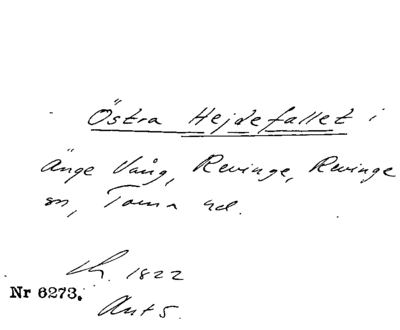 Östra Hejdefallet i
Änge Vång, Revinge, Revinge
sn, Torna hd.
Lh. 1822
Nr 6273.
Ant 5.